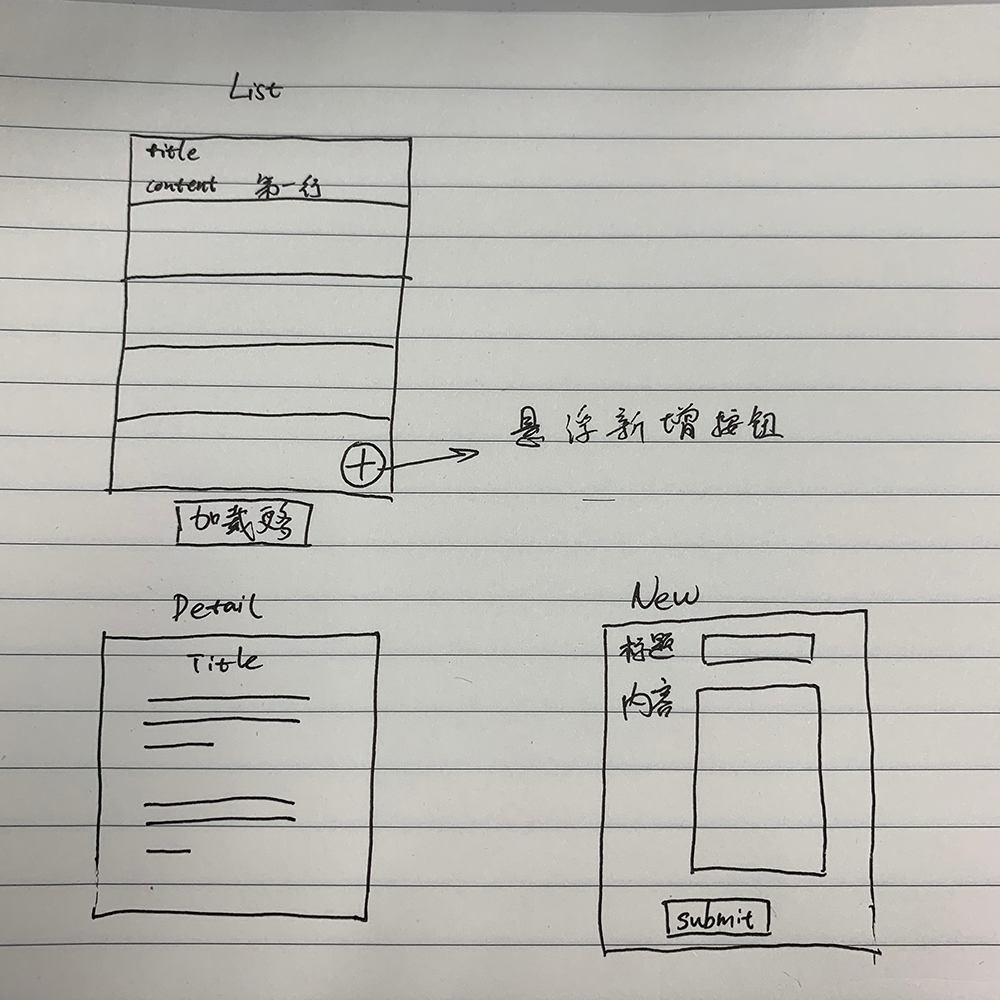 List
title
content 第一行
悬浮新增按钮
加载更多
Detail
Title
New
标题
内容
submit